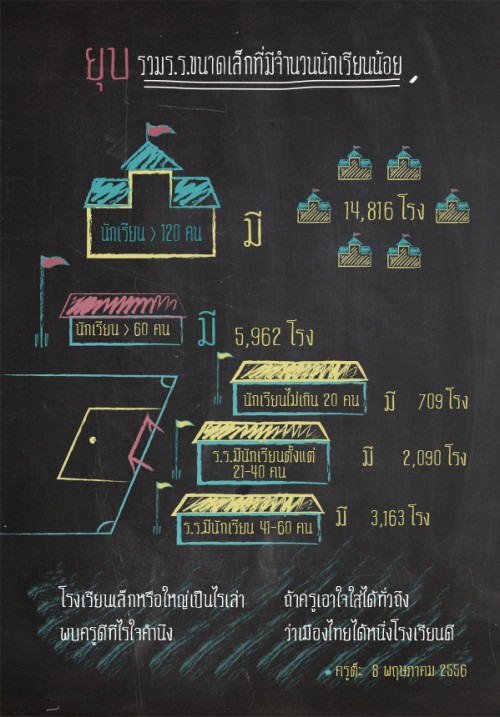 ยุบ รวมร.ร.ขนาดเล็กที่มีจำนวนนักเรียนน้อย
นักเรียน > 120 คน มี 14,816 โรง
นักเรียน > 60 คน มี 5,962 โรง
นักเรียนไม่เกิน 20 คน มี 709 โรง
ร.ร.มีนักเรียนตั้งแต่
21-40 คน มี 2,090 โรง
ร.ร.มีนักเรียน 41-60 คน มี 3,163 โรง
โรงเรียนเล็กหรือใหญ่เป็นไรเล่า ถ้าครูเอาใจใส่ได้ทั่วถึง
พบครูดีทีไรใจคำนึง ว่าเมืองไทยได้หนึ่งโรงเรียนดี
ครูต๊ะ 8 พฤษภาคม 2556